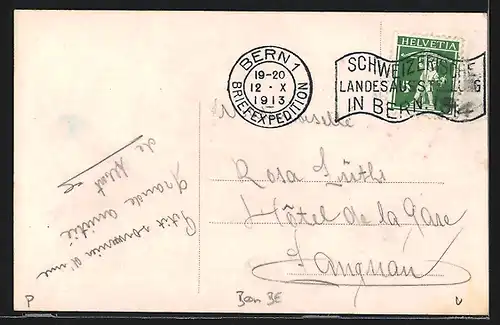 BERN 1
19-20
12 · X
1913
BRIEFEXPEDITION
HELVETIA
SCHWEIZERISCHE
LANDESAUSSTELLUNG
IN BERN 1914
Rosa Lüthi
Hôtel de la Gare
Langnau
Petit souvenir d'une
grande amitié
de
P
Bern BE